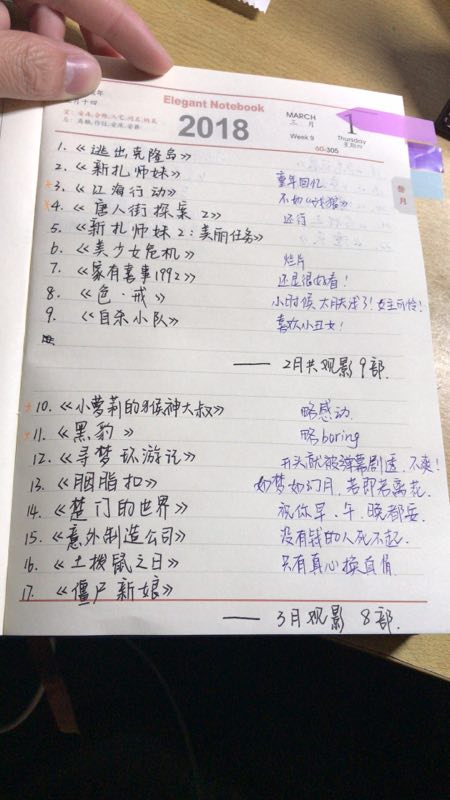 月十四
Elegant Notebook
2018
MARCH
三月
Week 9
60-305
1
Thursday
星期四
叁月
1.《逃出克隆岛》
2.《新扎师妹》 童年回忆
3.《江海行动》 不如《战狼》
4.《唐人街探案2》 还行
5.《新扎师妹2:美丽任务》
6.《美少女危机》 烂片
7.《家有喜事1992》 还是很好看!
8.《色·戒》 小时候大肤浅了!女主可怜!
9.《自杀小队》 喜欢小丑女!
—— 2月共观影9部.
10.《小萝莉的猴神大叔》 略感动.
11.《黑豹》 略boring
12.《寻梦环游记》 开头就被弹幕剧透,不爽!
13.《胭脂扣》 如梦如幻月,若即若离花.
14.《楚门的世界》 祝你早、午、晚都安.
15.《意外制造公司》 没有钱的人死不起.
16.《土拨鼠之日》 只有真心换真情.
17.《僵尸新娘》
—— 3月观影 8部.